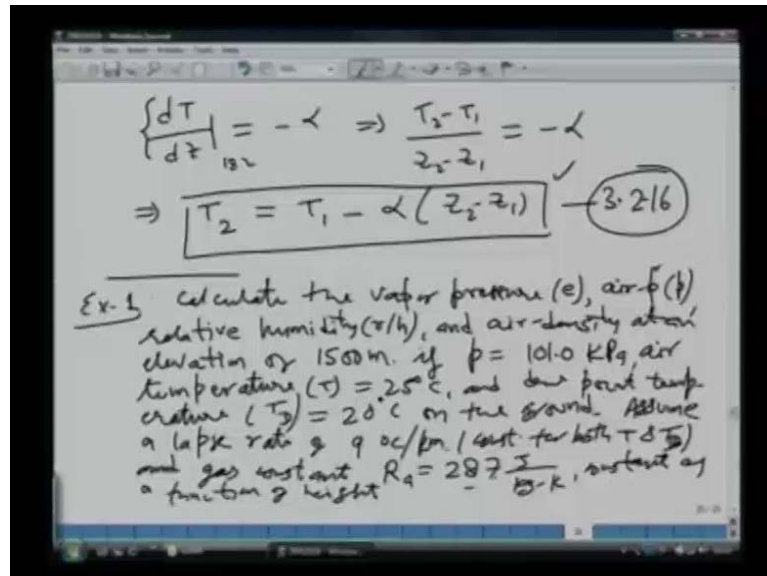 {dT/dZ|₁₈₂ = -α ⇒ (T₂-T₁)/(Z₂-Z₁) = -α
⇒ T₂ = T₁ - α(Z₂-Z₁) ✓ — 3.216
Ex-1 Calculate the vapor pressure (e), air-p (p)
relative humidity (r/h), and air-density at an
elevation of 1500 m. if p = 101.0 KPa, air
temperature (T) = 25°C, and dew point temp-
erature (T_D) = 20°C on the ground. Assume
a lapse rate of 9 oc/km (const for both T & T_D)
and gas constant R_a = 287 J/kg-K, constant as
a function of height